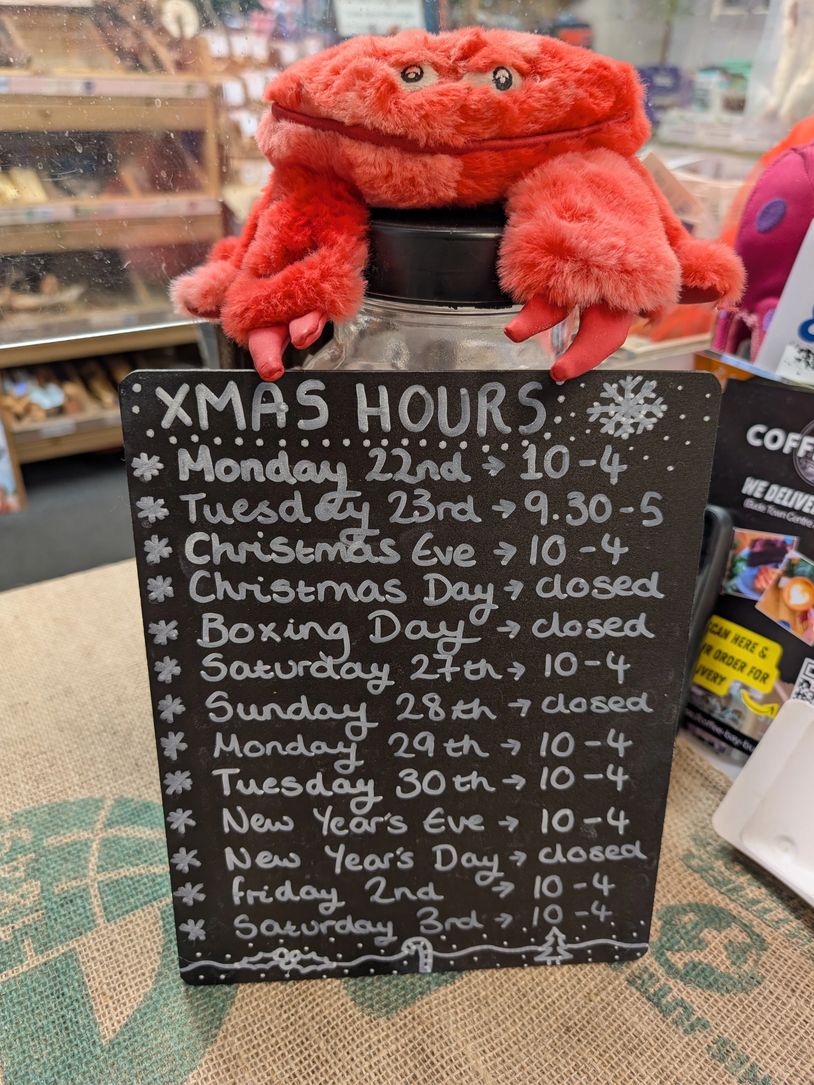 XMAS HOURS
Monday 22nd → 10-4
Tuesday 23rd → 9.30-5
Christmas Eve → 10-4
Christmas Day → closed
Boxing Day → closed
Saturday 27th → 10-4
Sunday 28th → closed
Monday 29th → 10-4
Tuesday 30th → 10-4
New Year's Eve → 10-4
New Year's Day → closed
friday 2nd → 10-4
Saturday 3rd → 10-4
COFF
WE DELIVER
Bude Town Centre
CAN HERE &
R ORDER FOR
VERY